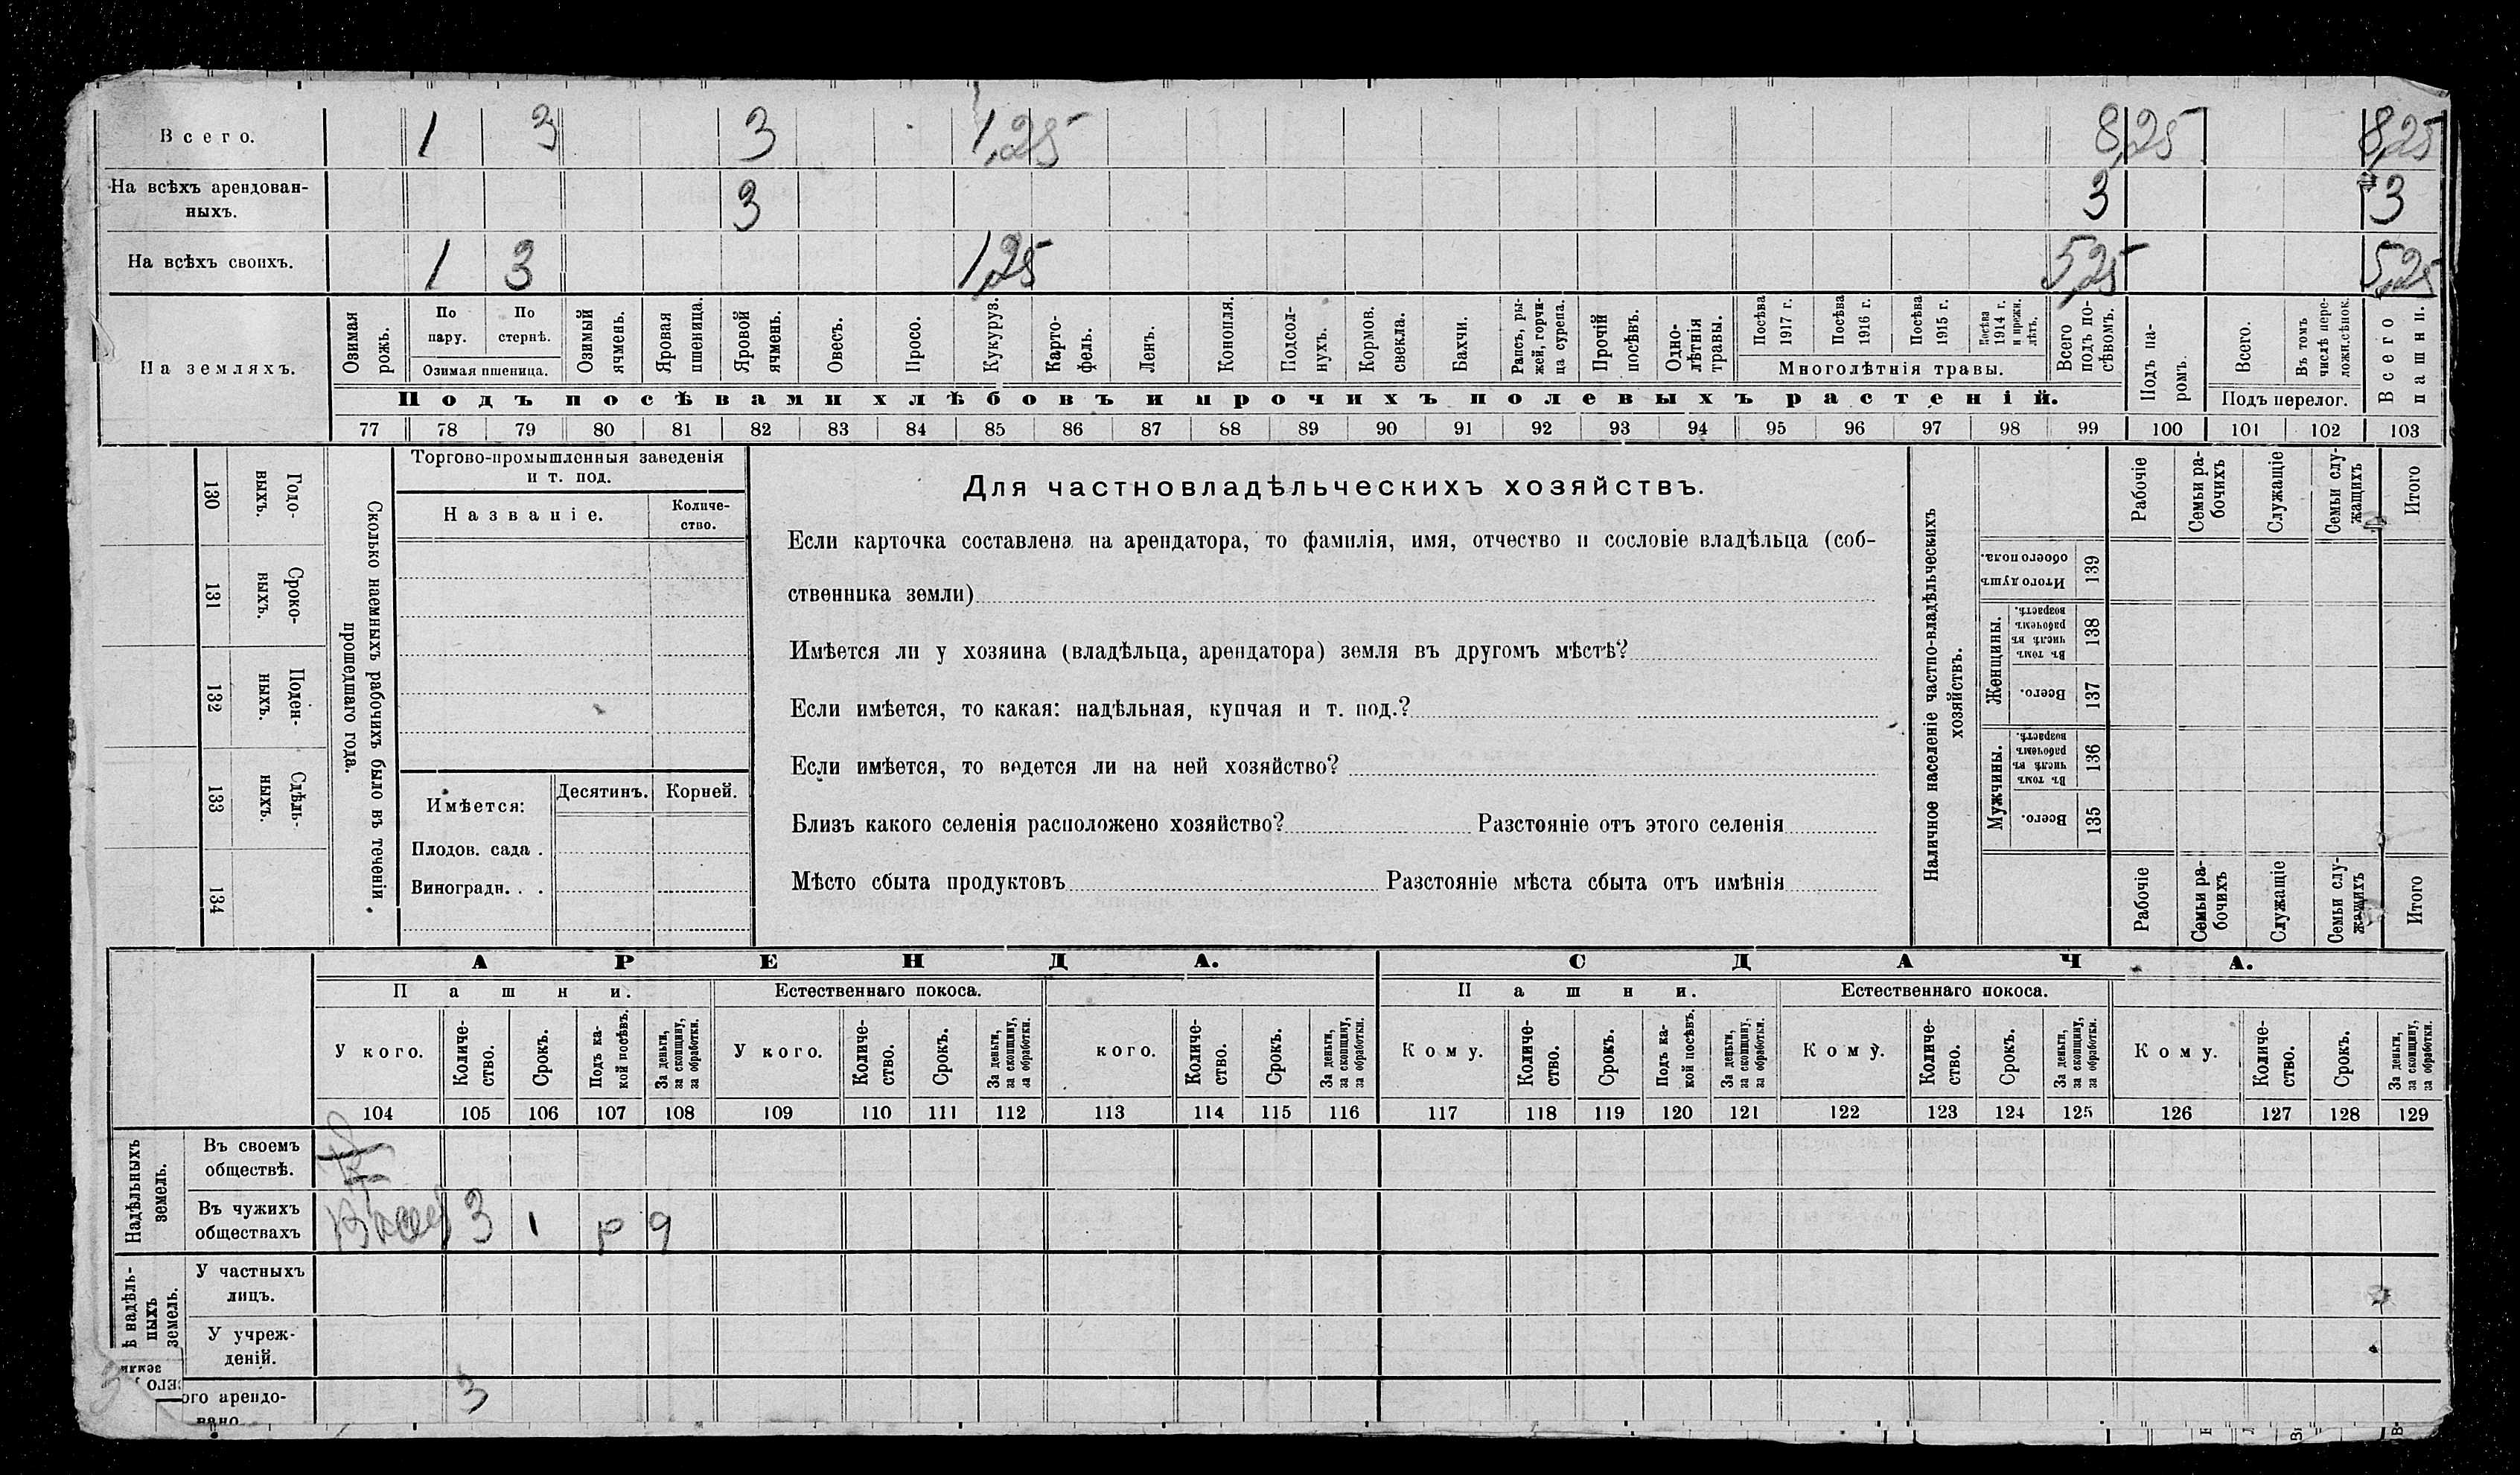 Всего. 1 3 3 1,25 8,25 8,25
На всѣхъ арендован-
ныхъ. 3 3 3
На всѣхъ своихъ. 1 3 1,25 5,25 5,25
На земляхъ.
Озимая
рожь.
По
пару.
По
стернѣ.
Озимая пшеница.
Озимый
ячмень.
Яровая
пшеница.
Яровой
ячмень.
Овесъ.
Просо.
Кукуруз.
Карто-
фель.
Ленъ.
Конопля.
Подсол-
нухъ.
Кормов.
свекла.
Бахчи.
Рапсъ, ры-
жей, горчи-
ца сурепа.
Прочій
посѣвъ.
Одно-
лѣтнія
травы.
Посѣва
1917 г.
Посѣва
1916 г.
Посѣва
1915 г.
Посѣва
1914 г.
и прежн.
лѣтъ.
Многолѣтнія травы.
Всего
подъ по-
сѣвомъ.
Подъ па-
ромъ.
Всего.
Въ томъ
числѣ пере-
ложн.сѣнок.
Подъ перелог.
Всего
пашни.
Подъ посѣвами хлѣбовъ и прочихъ полевыхъ растеній.
77 78 79 80 81 82 83 84 85 86 87 88 89 90 91 92 93 94 95 96 97 98 99 100 101 102 103
130 Годо-
выхъ.
131 Сроко-
выхъ.
132 Поден-
ныхъ.
133 Сдѣль-
ныхъ.
134
Сколько наемныхъ рабочихъ было въ теченіи
прошедшаго года.
Торгово-промышленныя заведенія
и т. под.
Названіе.
Количе-
ство.
Имѣется:
Десятинъ. Корней.
Плодов. сада .
Виноградн. . .
Для частновладѣльческихъ хозяйствъ.
Если карточка составлена на арендатора, то фамилія, имя, отчество и сословіе владѣльца (соб-
ственника земли)
Имѣется ли у хозяина (владѣльца, арендатора) земля въ другомъ мѣстѣ?
Если имѣется, то какая: надѣльная, купчая и т. под.?
Если имѣется, то ведется ли на ней хозяйство?
Близъ какого селенія расположено хозяйство? Разстояніе отъ этого селенія
Мѣсто сбыта продуктовъ Разстояніе мѣста сбыта отъ имѣнія
Наличное населеніе частно-владѣльческихъ
хозяйствъ.
Рабочіе
Семьи ра-
бочихъ
Служащіе
Семьи слу-
жащихъ
Итого
Итого душъ
обоего пола.
139
Женщины.
Въ томъ
числѣ въ
рабочемъ
возрастѣ.
138
Всего.
137
Мужчины.
Въ томъ
числѣ въ
рабочемъ
возрастѣ.
136
Всего.
135
Рабочіе
Семьи ра-
бочихъ
Служащіе
Семьи слу-
жащихъ
Итого
АРЕНДА. СДАЧА.
Пашни. Естественнаго покоса. Пашни. Естественнаго покоса.
У кого.
Количе-
ство.
Срокъ.
Подъ ка-
кой посѣвъ.
За деньги,
за скопщину,
за обработки.
У кого.
Количе-
ство.
Срокъ.
За деньги,
за скопщину,
за обработки.
кого.
Количе-
ство.
Срокъ.
За деньги,
за скопщину,
за обработки.
Кому.
Количе-
ство.
Срокъ.
Подъ ка-
кой посѣвъ.
За деньги,
за скопщину,
за обработки.
Кому.
Количе-
ство.
Срокъ.
За деньги,
за скопщину,
за обработки.
Кому.
Количе-
ство.
Срокъ.
За деньги,
за скопщину,
за обработки.
104 105 106 107 108 109 110 111 112 113 114 115 116 117 118 119 120 121 122 123 124 125 126 127 128 129
Надѣльныхъ
земель.
Въ своемъ
обществѣ.
Въ чужихъ
обществахъ 3 1
ѣ надѣль-
ныхъ
земель.
У частныхъ
лицъ.
У учреж-
деній.
ого арендо-
вано 3